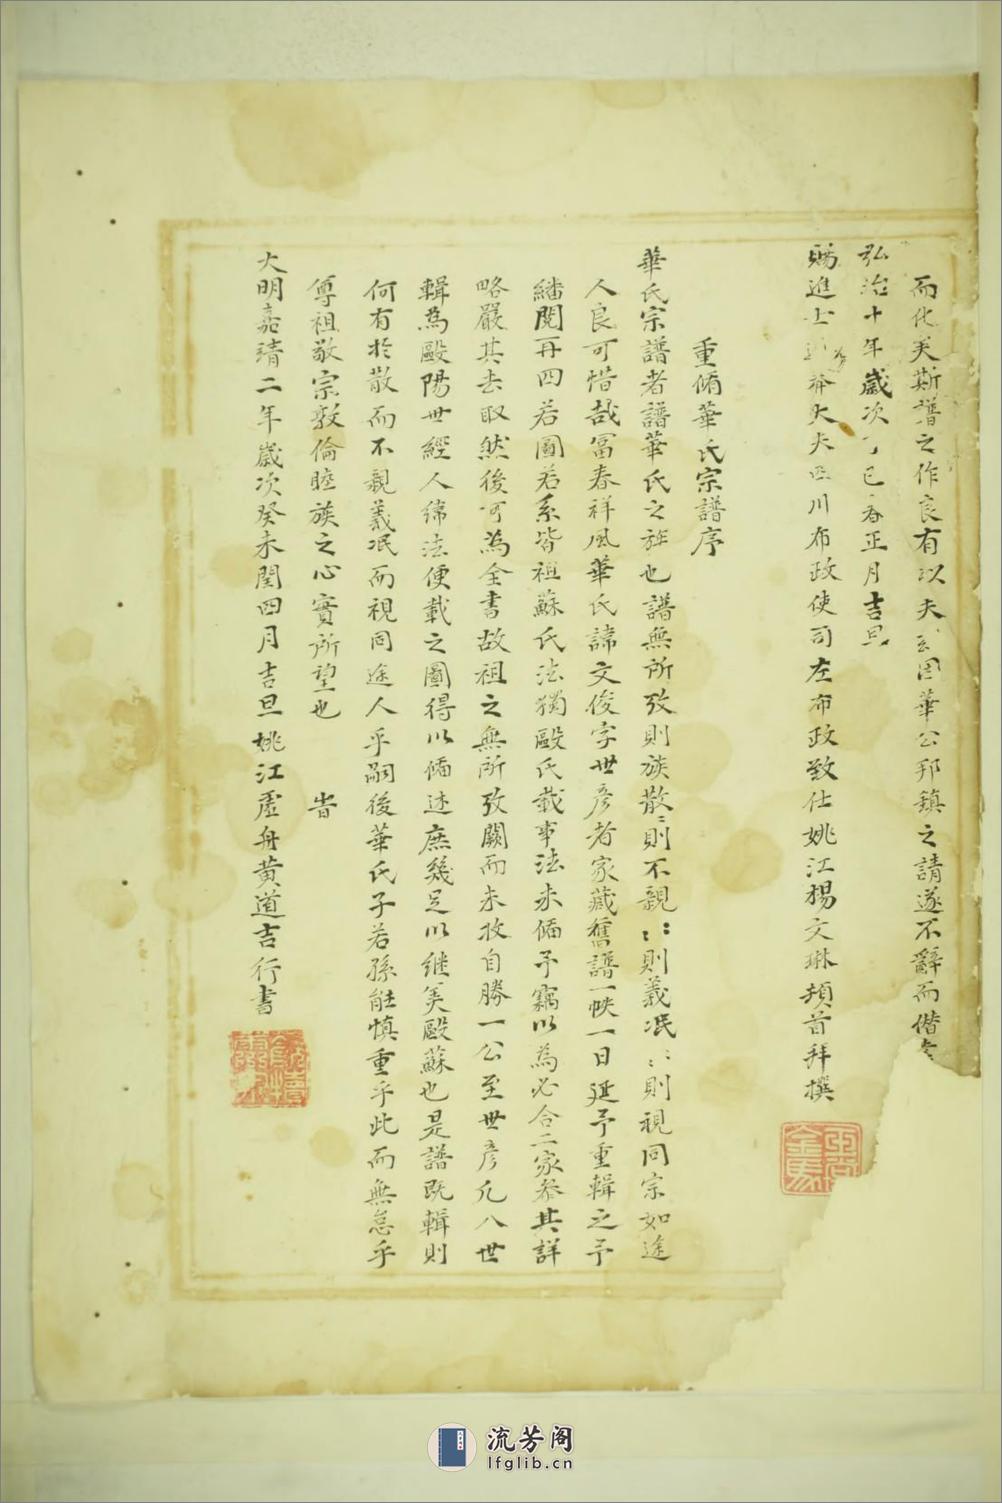 而化矣斯譜之作良有以夫 因華公邦鎮之請遂不辭而僭
弘治十年歲次丁巳春正月吉旦
賜進士 大夫四川布政使司左布政致仕姚江楊文琳頓首拜撰
重脩華氏宗譜序
華氏宗譜者譜華氏之族也譜無所攷則族散〻則不親〻〻則義泯〻〻則視同宗如途
人良可惜哉冨春祥風華氏諱文俊字世彥者家藏舊譜一帙一日延予重輯之予
繙閱再四若圖若系皆祖蘇氏法獨毆氏載事法未備予竊以為必合二家叅其詳
略嚴其去取然後可為全書故祖之無所攷闕而未收自勝一公至世彥凢八世
輯為毆陽世經人緯法便載之圖得以備述庶幾足以継美毆蘇也是譜既輯則
何有於散而不親義泯而視同途人乎嗣後華氏子若孫能慎重乎此而無怠乎
尊祖敬宗敦倫睦族之心實所望也 旹
大明嘉靖二年歲次癸未閏四月吉旦姚江虛舟黄道吉行書
流芳阁
lfglib.cn